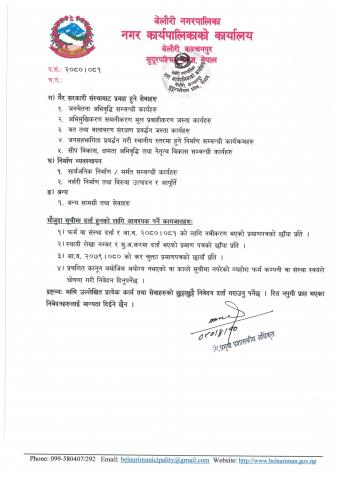 बेलौरी नगरपालिका
नगर कार्यपालिकाको कार्यालय
बेलौरी, कञ्चनपुर
सुदूरपश्चिम प्रदेश, नेपाल
प.सं.: २०८०।०८१
च.नं.:
ग) गैर सरकारी संस्थाबाट प्रवाह हुने सेवाहरु
१. जनचेतना अभिबृद्धि सम्बन्धी कार्यहरु
२. अभिमुखिकरण सबलीकरण मूल प्रबाहीकरण जस्ता कार्यहरु
३. वन तथा वातावरण संरक्षण प्रवर्द्धन जस्ता कार्यहरु
४. जनसहभागिता प्रवर्द्धन गरी स्थानीय स्तरमा हुने निर्माण सम्बन्धी कार्यक्रमहरु
५. सीप विकास, क्षमता अभिबृद्धि तथा नेतृत्व विकास सम्बन्धी कार्यहरु
घ) निर्माण व्यवस्थापन
१. सार्वजनिक निर्माण / मर्मत सम्बन्धी कार्यहरु
२. नर्सरी निर्माण तथा विरुवा उत्पादन र आपूर्ति
ङ) अन्य
१. अन्य सामग्री तथा सेवाहरु
मौजुदा सूचीमा दर्ता हुनको लागि आवश्यक पर्ने कागजातहरु:
१) फर्म वा संस्था दर्ता र आ.व. २०८०।०८१ को लागि नवीकरण भएको प्रमाणपत्रको छाँया प्रति ।
२) स्थायी लेखा नम्बर र मु.अ.करमा दर्ता भएको प्रमाण पत्रको छाँया प्रति ।
३) आ.व. २०७९।०८० को कर चुक्ता प्रमाणपत्रको छायाँ प्रति ।
४) प्रचलित कानून बमोजिम अयोग्य नभएको वा कालो सूचीमा नपरेको व्यहोरा फर्म कम्पनी वा संस्था स्वयंले
घोषणा गरी निवेदन दिनुपर्नेछ ।
द्रष्टव्यः माथि उल्लेखित प्रत्येक कार्य तथा सेवाहरुको छुट्टाछुट्टै निवेदन दर्ता गराउनु पर्नेछ । रित नपुगी प्राप्त भएका
निवेदनहरुलाई मान्यता दिईने छैन ।
प्रमुख प्रशासकीय अधिकृत
Phone: 099-580407/292 Email: belaurimunicipality@gmail.com Website: http://www.belaurimun.gov.np